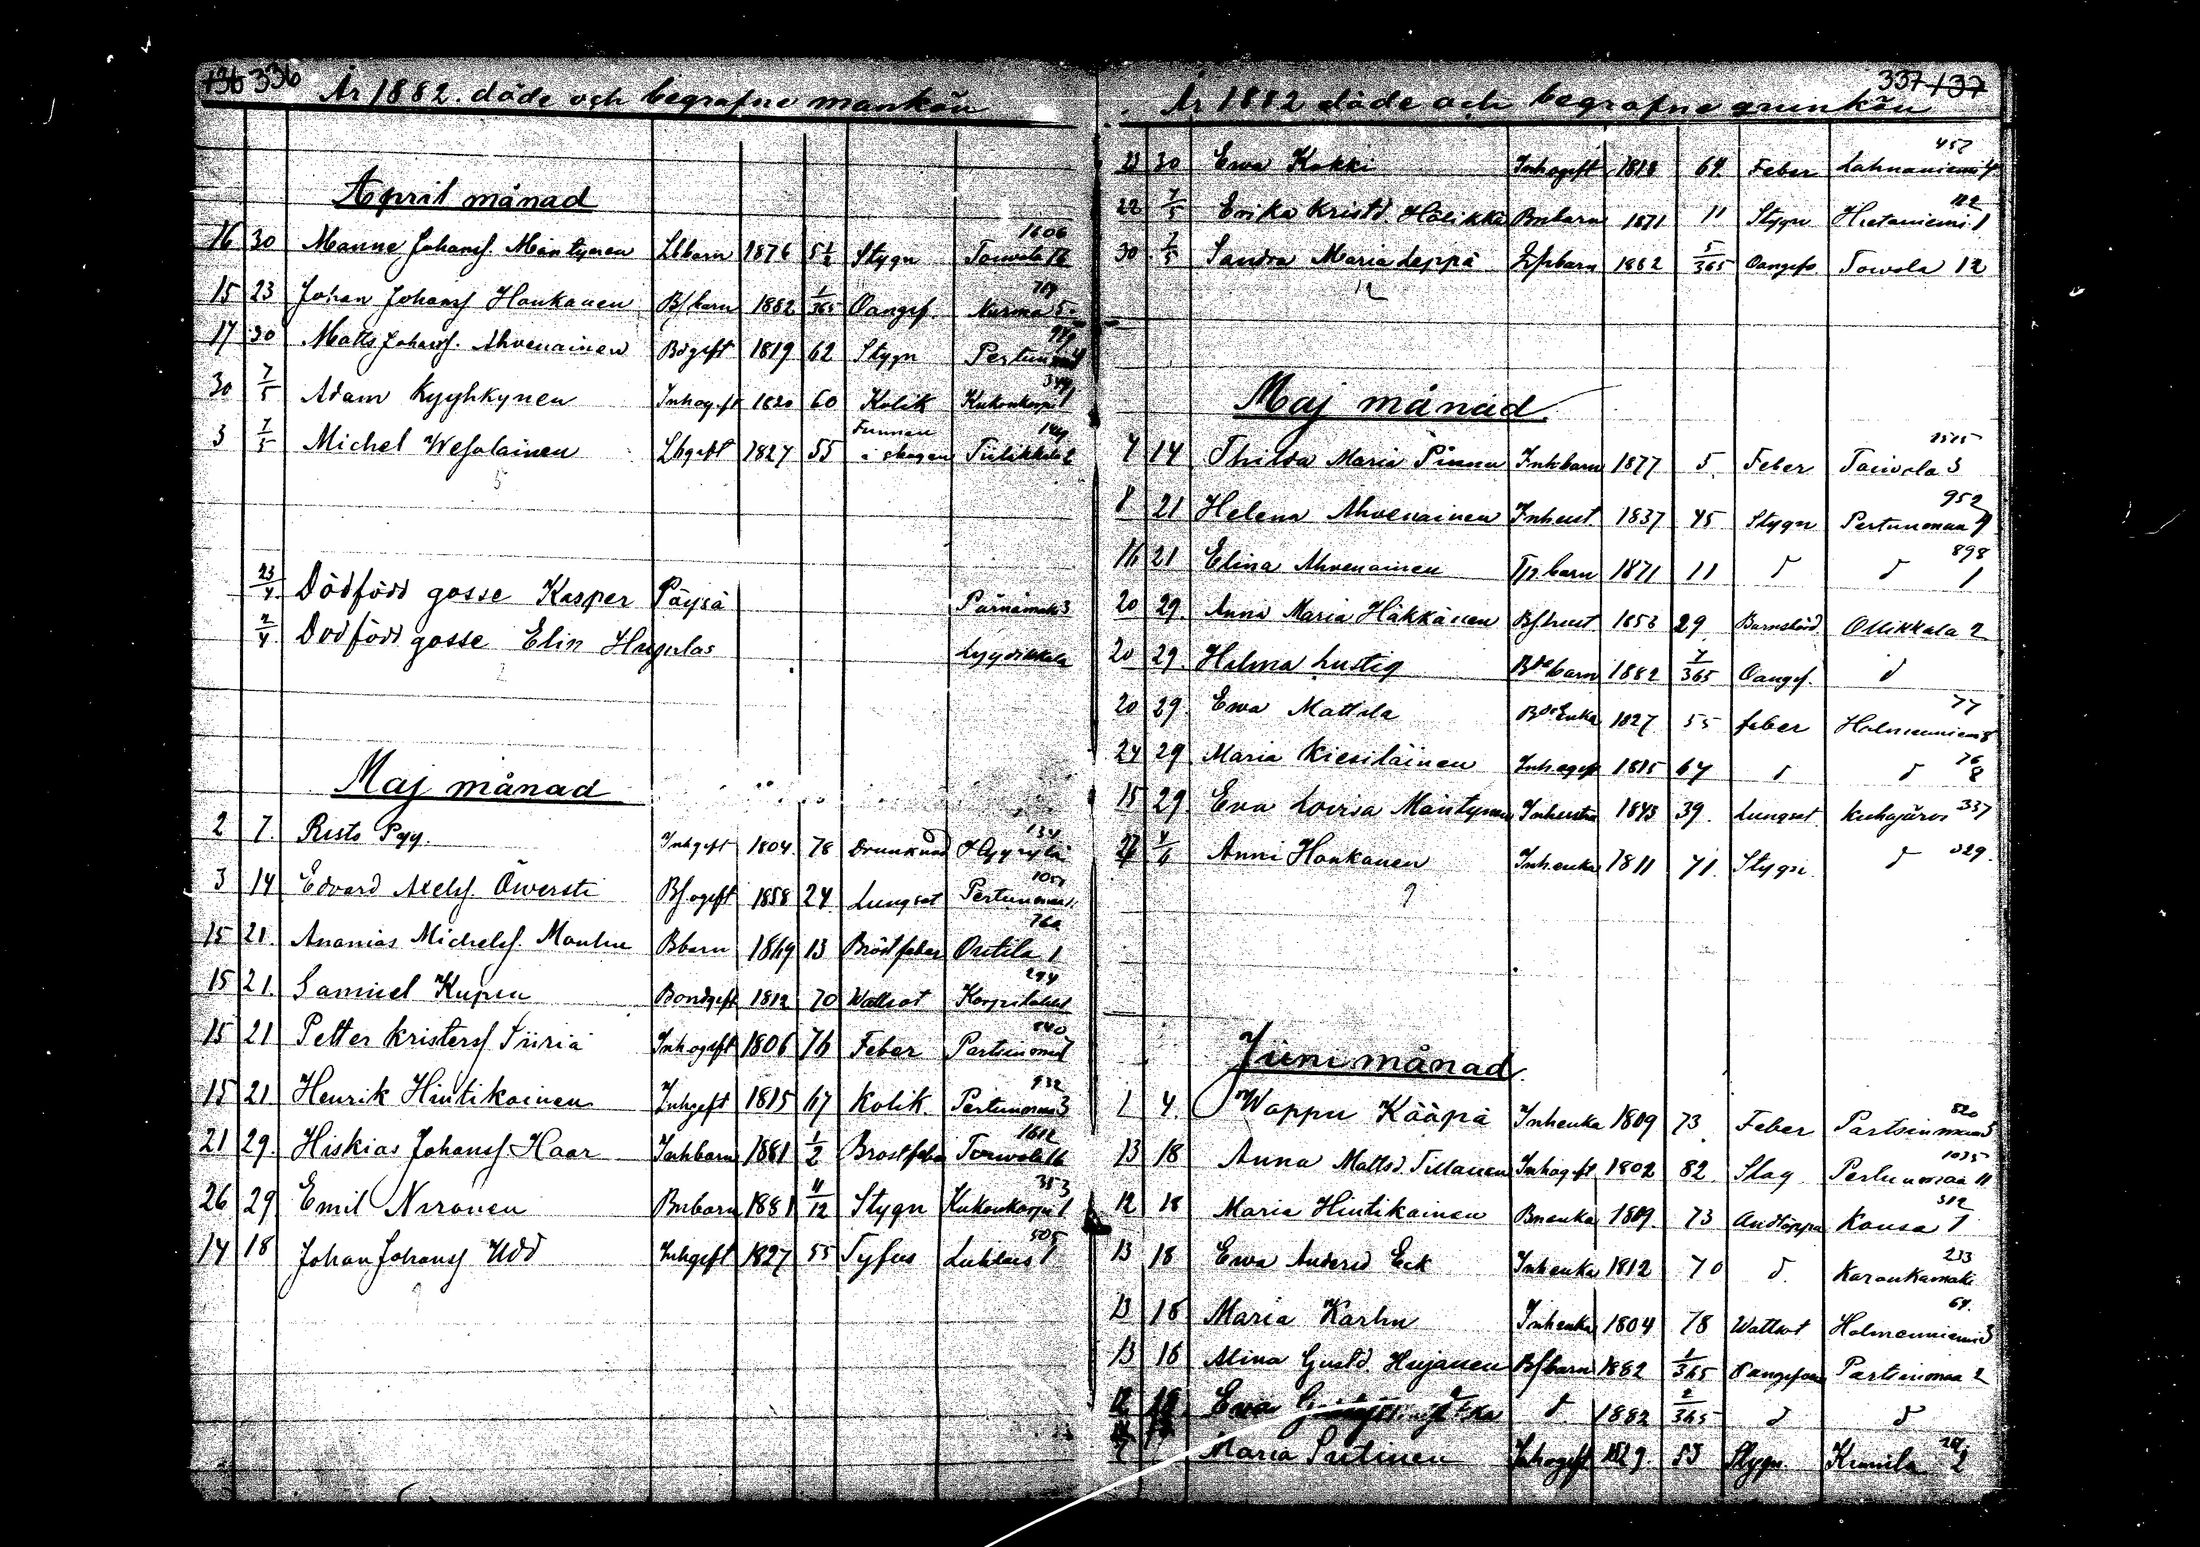 136 336
År 1882. döde och begrafne mankön
April månad
16 30 Manne Johansf. Mäntynen Lbbarn 1876 5½ Stygn 1606 Toivola 12
15 23 Johan Johansf Honkanen Bfbarn 1882 1/365 Oangif. 719 Nurmaa 5
17 30 Matts Johansf. Ahvenainen Bdgift 1819 62 Stygn Pertunmaa
30 7/5 Adam Kyyhkynen Inhogift 1820 60 Kolik 349 Kukonkorpi 1
3 7/5 Michel Wesalainen Lbgift 1827 55 Funnen i skogen 149 Tiilikkala 2
5
23/4 Dödfödd gosse Kasper Päysä Pärnämäki 3
2/4 Dödfödd gosse Elin Hupulas Lyydikkala
2
Maj månad
2 7. Risto Pyy. Inhgift 1804 78 Drunknad 134
3 14 Edvard Axelsf Öwersti Bfogift 1858 24 Lungsot 1051 Pertunmaa
15 21. Ananias Michelsf. Manhu Bbarn 1869 13 Bröstfeber 762 Outila 1
15 21. Samuel Kupsu Bondgift 1812 70 Wattsot 294 Korpilahti
15 21 Petter Kristersf Siiriä Inhogift 1806 76 Feber 840 Partsinmaa
15 21. Henrik Hintikainen Inhgift 1815 67 Kolik. 932 Pertunmaa 3
21 29. Hiskias Johansf Haar Inhbarn 1881 1/2 Bröstfeber 1612 Toivola 16
26 29 Emil Nironen Bnbarn 1881 11/12 Stygn 353 Kukonkorpi 1
14 18 Johan Johansf Udd Inhgift 1827 55 Tyfus 505 Luhtais 1
9
337 137
År 1882 döde och begrafne qvinkön
23 30 Ewa Kokki Inhogift 1818 64 Feber 457 Lahnaniemi 4
22 7/5 Erika Kristd. Hölikkä Bnbarn 1871 11 Stygn 112 Hietaniemi 1
30 7/5 Sandra Maria Leppä Bfbarn 1882 5/365 Oangifv Toivola 12
12
Maj månad
7 14 Thilda Maria Pinnu Inhbarn 1877 5. Feber 1515 Toivola 3
8 21 Helena Ahvenainen Inhust 1837 45 Stygn 952 Pertunmaa 4
16 21 Elina Ahvenainen Trpbarn 1871 11 d d 898 1
20 29. Anna Maria Häkkänen Bfhust. 1853 29. Barnsbörd Ollikkala 2
20 29. Helma Lustig Bdebarn 1882 7/365 Oangif. d
20 29. Ewa Mattila Bdeenka 1827 55 feber 77 Halmeniemi 8
24 29 Maria Kiesiläinen Inhogift 1815 67 d d 76 8
15 29. Eva Lovisa Mäntynen Inhustru 1843 39. Lungsot Kuhajärvi 337
27 4/6 Anni Honkanen Inhenka 1811 71. Stygn. d 329.
9
Juni månad.
1 4. Wappu Kääpä Inhenka 1809 73. Feber 820 Partsinmaa 5
13 18 Anna Mattsd. Tillanen Inhogift 1802 82. Slag 1035 Pertunmaa 11
12 18 Maria Hintikainen Bnenka 1809. 73 Andtäppa 312 Kousa 1
13 18 Ewa Andersd Eck Inhenka 1812 70 d. 233 Karankamäki
13 18 Maria Karhu Inhenka 1804 78 Wattsot 64. Halmeniemi 3
13 18 Alina Gustd. Hujanen Bfbarn 1882 1/365 Oangifven Partsinmaa 2
12 18 Ewa d 1882 2/365 d d
Maria Sutinen Inhogift 1829. 53 Stygn Kimila 2